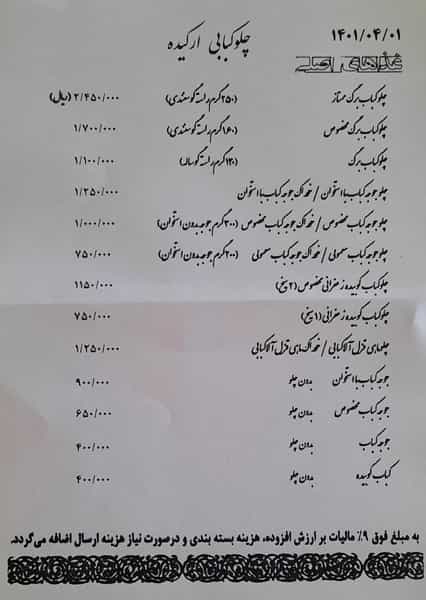 ۱۴۰۱/۰۴/۰۱
چلوکبابی ارکیده
غذاهای اصلی
چلوکباب برگ ممتاز (۲۵۰ گرم راسته گوسفندی) ۲/۴۵۰/۰۰۰ (ریال)
چلوکباب برگ مخصوص (۱۶۰ گرم راسته گوسفندی) ۱/۷۰۰/۰۰۰
چلوکباب برگ (۱۳۰ گرم راسته گوساله) ۱/۱۰۰/۰۰۰
چلو جوجه کباب با استخوان / خوراک جوجه کباب با استخوان ۱/۲۵۰/۰۰۰
چلو جوجه کباب مخصوص / خوراک جوجه کباب مخصوص (۳۰۰ گرم جوجه بدون استخوان) ۱/۰۰۰/۰۰۰
چلو جوجه کباب معمولی / خوراک جوجه کباب معمولی (۲۰۰ گرم جوجه بدون استخوان) ۷۵۰/۰۰۰
چلوکباب کوبیده زعفرانی مخصوص (۲ سیخ) ۱۱۵۰/۰۰۰
چلوکباب کوبیده زعفرانی (۱ سیخ) ۷۵۰/۰۰۰
چلو ماهی قزل آلا کبابی / خوراک ماهی قزل آلا کبابی ۱/۲۵۰/۰۰۰
جوجه کباب با استخوان بدون چلو ۹۰۰/۰۰۰
جوجه کباب مخصوص بدون چلو ۶۵۰/۰۰۰
جوجه کباب بدون چلو ۴۰۰/۰۰۰
کباب کوبیده بدون چلو ۴۰۰/۰۰۰
به مبلغ فوق ۹٪ مالیات بر ارزش افزوده، هزینه بسته بندی و درصورت نیاز هزینه ارسال اضافه می‌گردد.